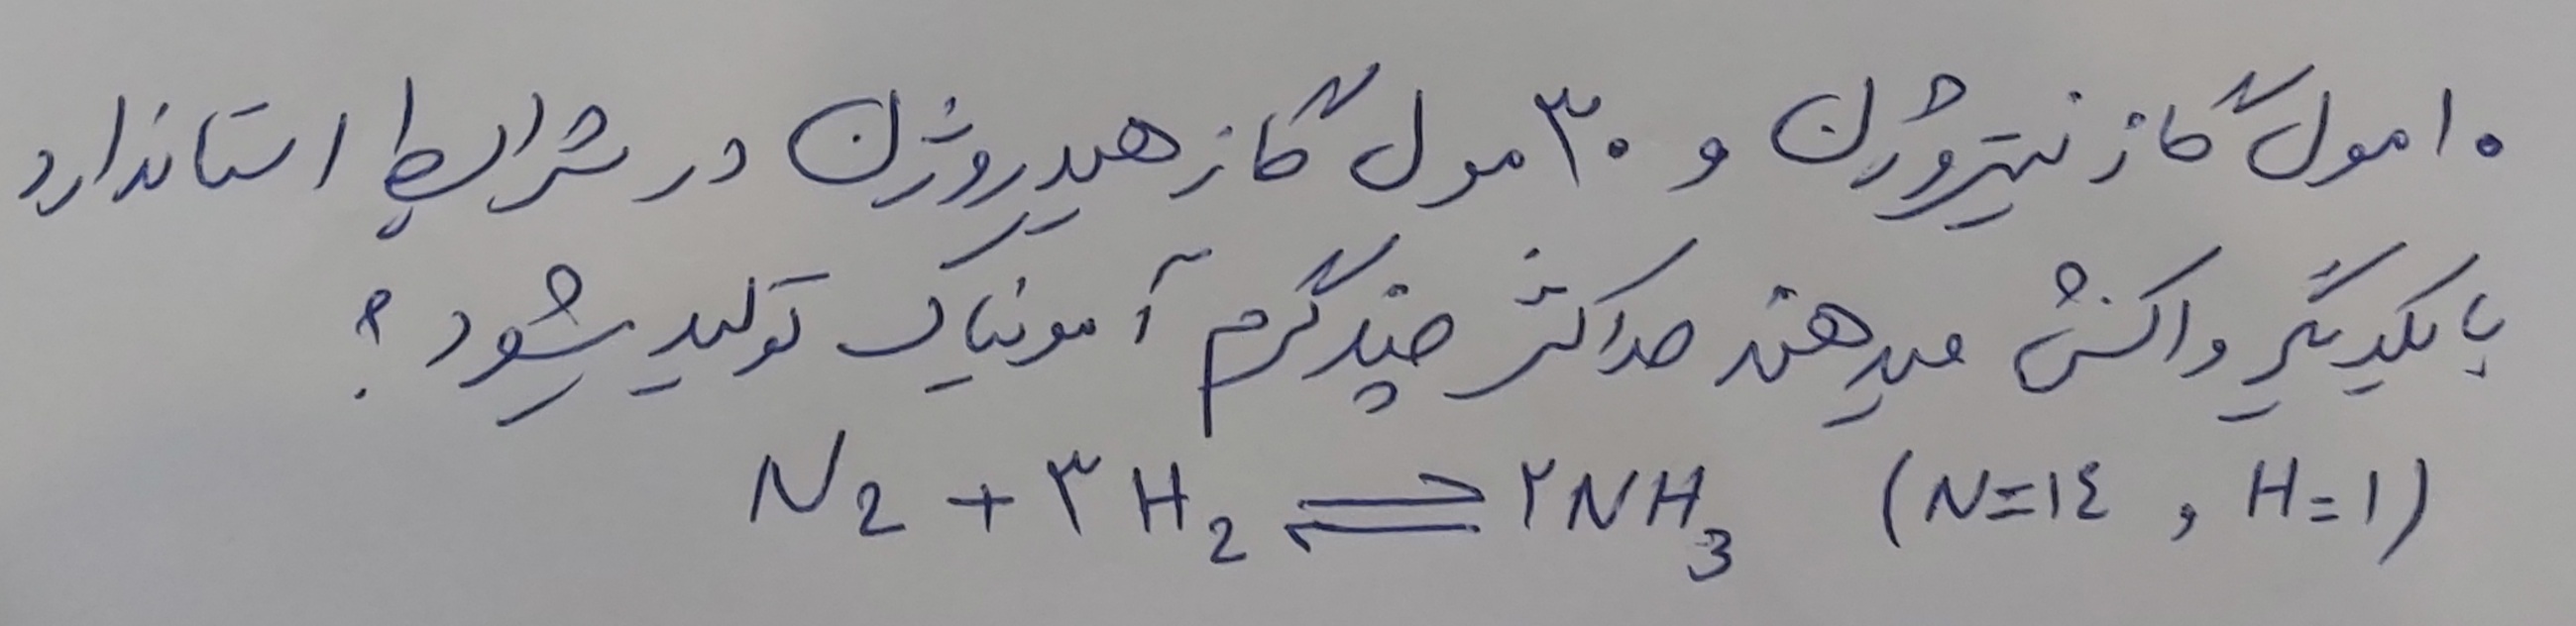 ۱۰ مول گاز نیتروژن و ۳۰ مول گاز هیدروژن در شرایط استاندارد
با یکدیگر واکنش میدهند حداکثر چند گرم آمونیاک تولید میشود ؟
N2 + ۳H2 ⇌ ۲NH3 (N=۱٤ , H=۱)